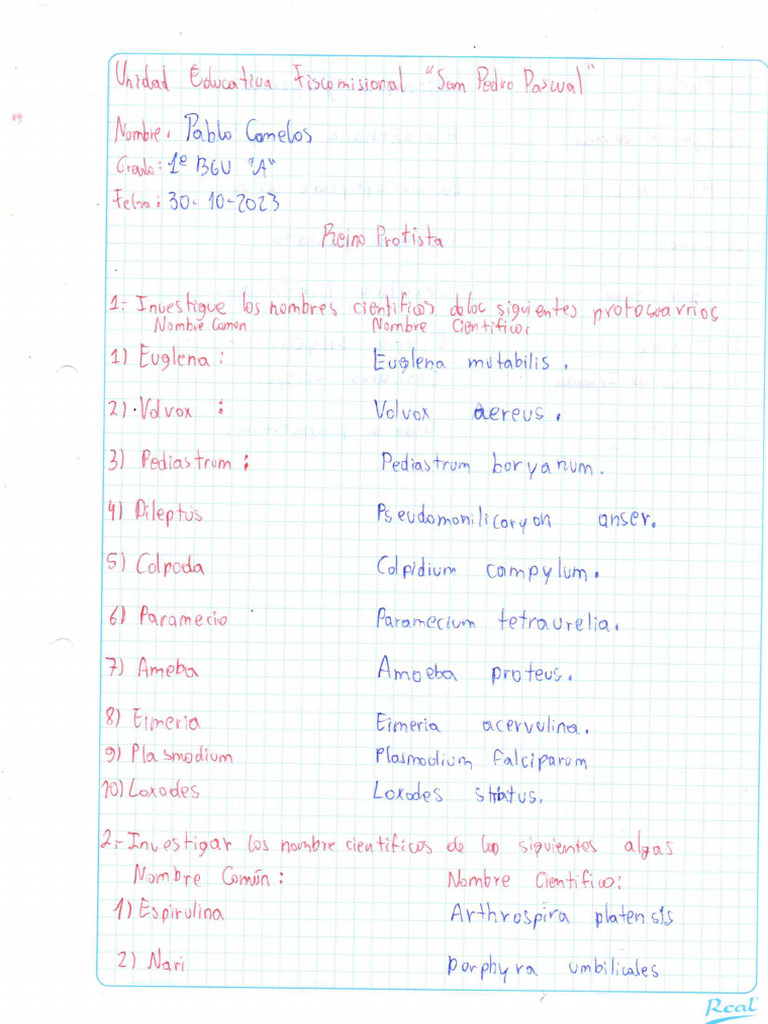 Unidad Educativa Fiscomisional "San Pedro Pascual"
Nombre: Pablo Canelos
Grado: 1º BGU "A"
Fecha: 30-10-2023
Reino Protista
1.- Investigue los nombres cientificos de los siguientes protozoarrios
Nombre Común Nombre Cientifico:
1) Euglena: Euglena mutabilis.
2) Volvox: Volvox aereus.
3) Pediastrum: Pediastrum boryanum.
4) Dileptus Pseudomonilicaryon anser.
5) Colpoda Colpidium campylum.
6) Paramecio Paramecium tetraurelia.
7) Ameba Amoeba proteus.
8) Eimeria Eimeria acervulina.
9) Plasmodium Plasmodium falciparum
10) Loxodes Loxodes striatus.
2.- Investigar los nombre cientificos de los siguientes algas
Nombre Común: Nombre Cientifico:
1) Espirulina Arthrospira platensis
2) Nari porphyra umbilicales
Real